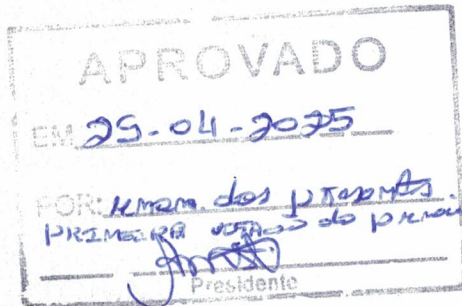 APROVADO
EM 25-04-2025
POR: unam. dos presentes.
PRIMEIRA votação do
Presidente